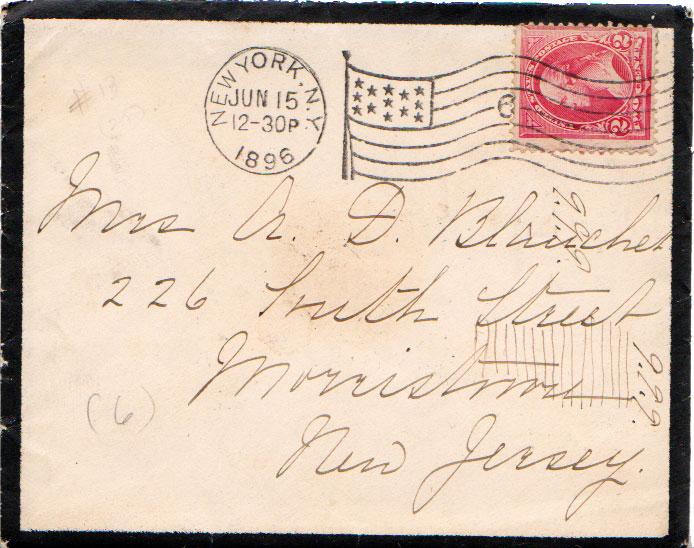 NEW YORK, N.Y.
JUN 15
12-30P
1896
6
2 2
Mrs A. D. Blanchet
226 South Street
Morristown
New Jersey.
(6)